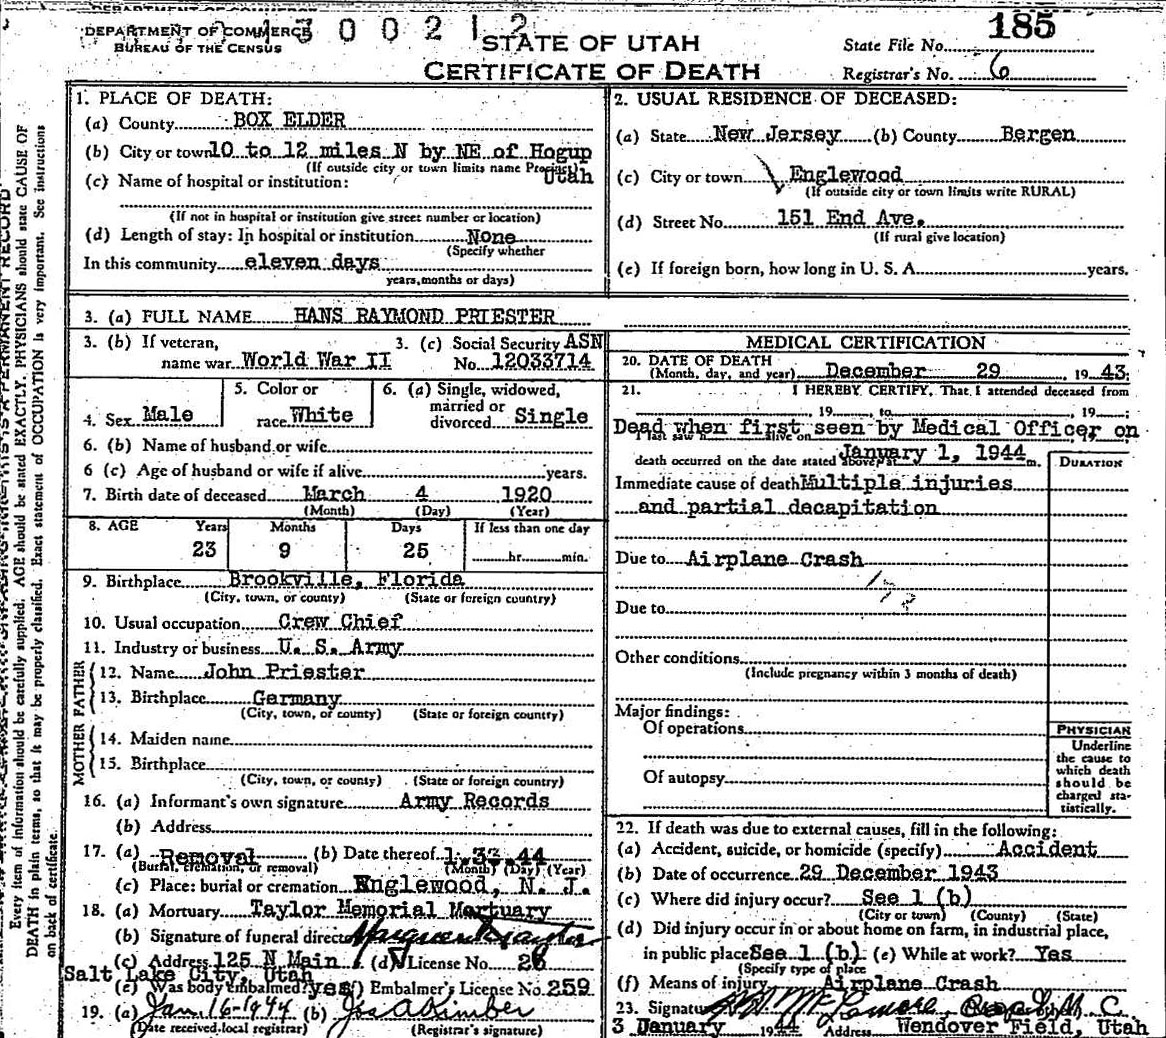 DEPARTMENT OF COMMERCE
BUREAU OF THE CENSUS
300212
STATE OF UTAH
CERTIFICATE OF DEATH
185
State File No.
Registrar's No. 6
Every item of information should be carefully supplied. AGE should be stated EXACTLY. PHYSICIANS should state CAUSE OF
DEATH in plain terms, so that it may be properly classified. Exact statement of OCCUPATION is very important. See instructions
on back of certificate.
1. PLACE OF DEATH:
(a) County BOX ELDER
(b) City or town 10 to 12 miles N by NE of Hogup
(If outside city or town limits name Precinct) Utah
(c) Name of hospital or institution:
(If not in hospital or institution give street number or location)
(d) Length of stay: In hospital or institution None
(Specify whether
In this community eleven days
years, months or days)
2. USUAL RESIDENCE OF DECEASED:
(a) State New Jersey (b) County Bergen
(c) City or town Englewood
(If outside city or town limits write RURAL)
(d) Street No. 151 End Ave.
(If rural give location)
(e) If foreign born, how long in U. S. A. years.
3. (a) FULL NAME HANS RAYMOND PRIESTER
3. (b) If veteran, name war World War II
3. (c) Social Security ASN
No. 12033714
4. Sex Male
5. Color or race White
6. (a) Single, widowed, married or divorced Single
6. (b) Name of husband or wife
6 (c) Age of husband or wife if alive years.
7. Birth date of deceased March 4 1920
(Month) (Day) (Year)
8. AGE Years Months Days If less than one day
23 9 25 hr. min.
9. Birthplace Brookville, Florida
(City, town, or county) (State or foreign country)
10. Usual occupation Crew Chief
11. Industry or business U. S. Army
FATHER
12. Name John Priester
13. Birthplace Germany
(City, town, or county) (State or foreign country)
MOTHER
14. Maiden name
15. Birthplace
(City, town, or county) (State or foreign country)
16. (a) Informant's own signature Army Records
(b) Address
17. (a) Removal (b) Date thereof 44
(Burial, cremation, or removal) (Month) (Day) (Year)
(c) Place: burial or cremation Englewood, N. J.
18. (a) Mortuary Taylor Memorial Mortuary
(b) Signature of funeral director
(c) Address 125 N Main (d) License No.
Salt Lake City, Utah
(e) Was body embalmed? yes (f) Embalmer's License No. 259
19. (a) Jan. 16-1944 (b) Jos A Kimber
(Date received local registrar) (Registrar's signature)
MEDICAL CERTIFICATION
20. DATE OF DEATH
(Month, day, and year) December 29 1943
21. I HEREBY CERTIFY, That I attended deceased from
, 19 to , 19 ;
Dead when first seen by Medical Officer on
January 1, 1944
death occurred on the date stated above, at m.
DURATION
Immediate cause of death Multiple injuries
and partial decapitation
Due to Airplane Crash
Due to
Other conditions
(Include pregnancy within 3 months of death)
Major findings:
Of operations
Of autopsy
PHYSICIAN
Underline
the cause to
which death
should be
charged sta-
tistically.
22. If death was due to external causes, fill in the following:
(a) Accident, suicide, or homicide (specify) Accident
(b) Date of occurrence 29 December 1943
(c) Where did injury occur? See 1 (b)
(City or town) (County) (State)
(d) Did injury occur in or about home on farm, in industrial place,
in public place See 1 (b) (e) While at work? Yes
(Specify type of place
(f) Means of injury Airplane Crash
23. Signature
3 January 1944 Address Wendover Field, Utah